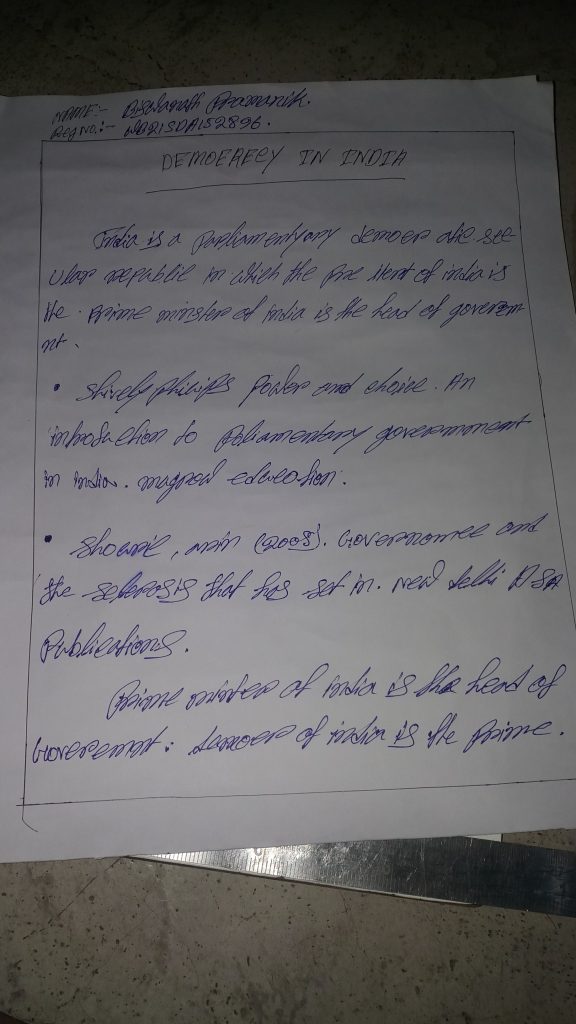 NAME:- Biswanath Pramanik.
Reg No.:- WB21SDA152896.
DEMOERECY IN INDIA
India is a Parliamentyary democr ate see
ular republic in which the Pre itent of india is
the . Prime minster of india is the head of governm
nt.
• Shively philips Power and choice. An
introduction to Paliamentary government
in india. mcgraw education.
• Shourie, arun (2005). Governomee and
the sclerosis that has set in. New Delhi ASA
Publications.
Prime minter of india is the head of
Goverment: democr of india is the prime.